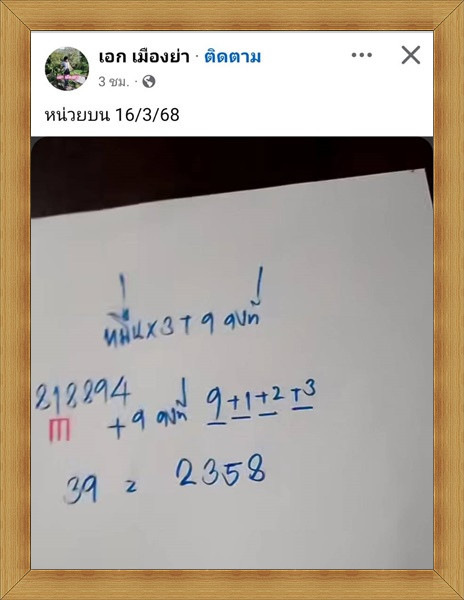 เอก เมืองย่า · ติดตาม
3 ชม. ·
หน่วยบน 16/3/68
หมื่นx3+9 คงที่
818894
m +9 คงที่ 9+1+2+3
39 = 2358